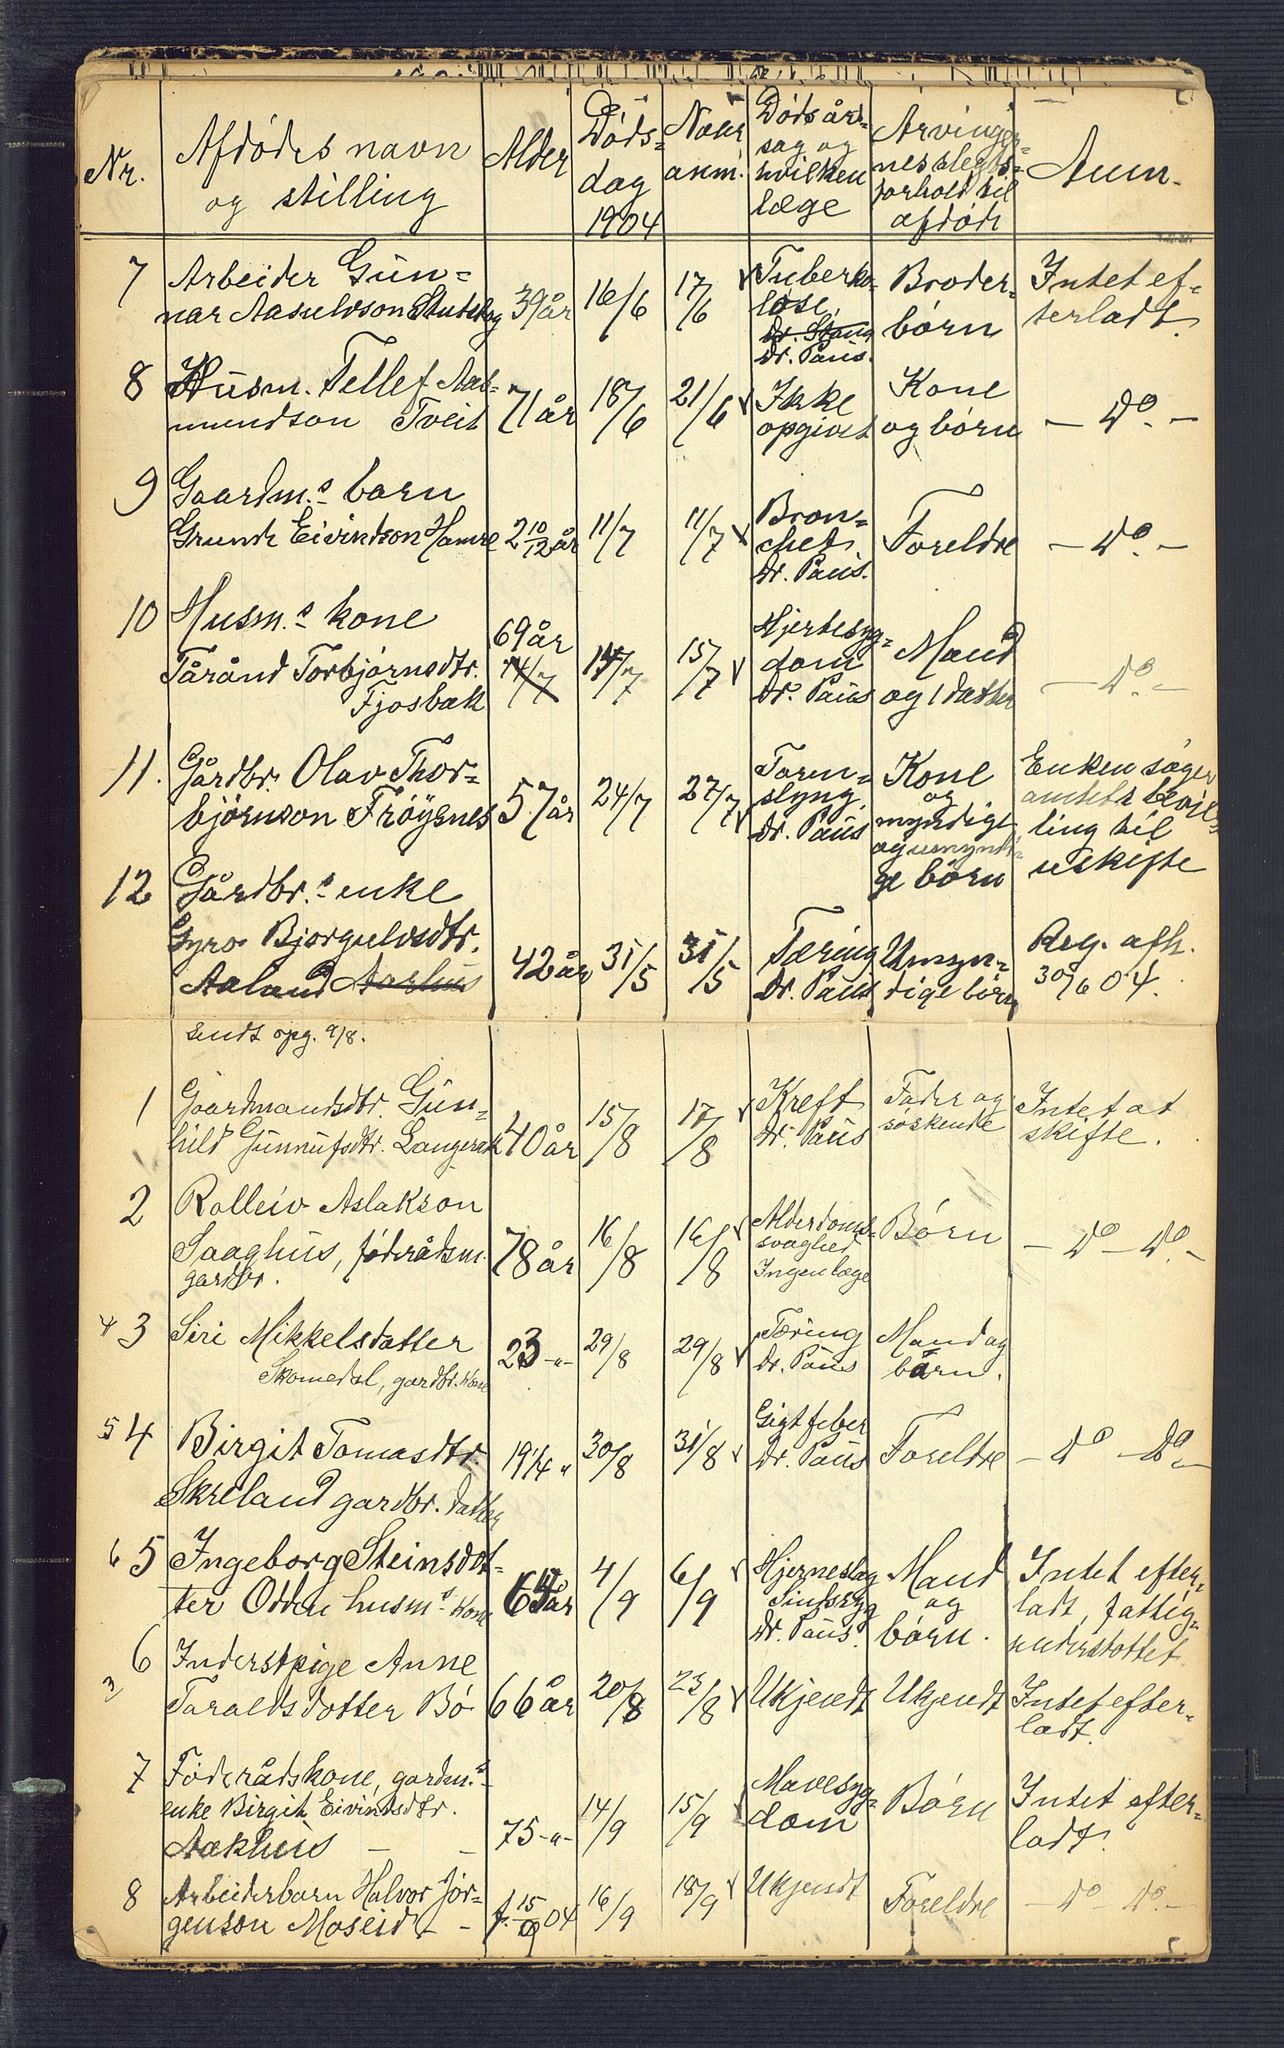 Nr. Afdødes navn og stilling Alder Døds-dag 1904 Naar anm. Dødsårs-sag og hvilken læge Arvinger-nes slegts-forhold til afdøde Anm.
7 Arbeider Gun-
nar Aasulvson Stutskog 39 år 16/6 17/6 Tuberko-lose, dr. Stang dr. Paus. Broder-børn Intet ef-terladt.
8 Husm. Tellef Aas-
mundson Tveit 71 år 18/6 21/6 Ikke opgivet Kone og børn - Do. -
9 Gaardm.s barn
Grunde Eivindson Hamre 2 10/12 år 11/7 11/7 Bron-chet dr. Paus. Foreldre - Do. -
10 Husm.s kone
Tårånd Torbjørnsdtr.
Fjosbæk 69 år 14/7 14/7 15/7 Hjertesyg-dom dr. Paus Mand og 1 datter - Do. -
11. Gårdbr. Olav Thor-
bjørnson Frøysnes 57 år 24/7 27/7 Tarm-slyng. dr. Paus Kone og myndige og umyndi-ge børn Enken søger amtets bevil-ling til uskifte
12 Gårdbr.s enke
Gyro Bjorgulvsdtr.
Aaland Aarhus 42 år 31/5 31/5 Tæring dr. Paus Umyn-dige børn Reg. afh. 30/6 04.
Sendt opg. 9/8.
1 Gaardmandsdtr. Gun-
hild Gunnufsdtr. Langerak 40 år 15/8 17/8 Kreft dr. Paus Fader og søskende Intet at skifte.
2 Rolleiv Aslakson
Saaghus, føderådsm.
gardbr. 78 år 16/8 16/8 Alderdoms-svaghed Ingen læge Børn - Do - Do. -
4 3 Siri Mikkelsdatter
Skomedal, gardbr. kone 23 -"- 29/8 29/8 Tæring dr. Paus Mand og børn.
5 4 Birgit Tomasdtr.
Skreland gardbr. datter 19 1/4 " 30/8 31/8 Gigtfeber dr. Paus Foreldre - Do - Do -
6 5 Ingeborg Steinsdot-
ter Odden husm.s kone år 4/9 6/9 Hjerneslag Sindssyg dr. Paus. Mand og børn. Intet efter-ladt, fattig-understøttet.
6 Inderstpige Anne
3 Taraldsdotter Bø 66 år 20/8 23/8 Ukjendt Ukjendt Intet efter-ladt.
7 Føderådskone, gardm.s
enke Birgit Eivindsdtr.
Aakhus - - 75 -"- 14/9 15/9 Mavesyg-dom Børn Intet efter-ladt.
8 Arbeiderbarn Halvor Jør-
genson Moseid - - f. 15/9 04 16/9 18/9 Ukjendt Foreldre - Do - Do. -